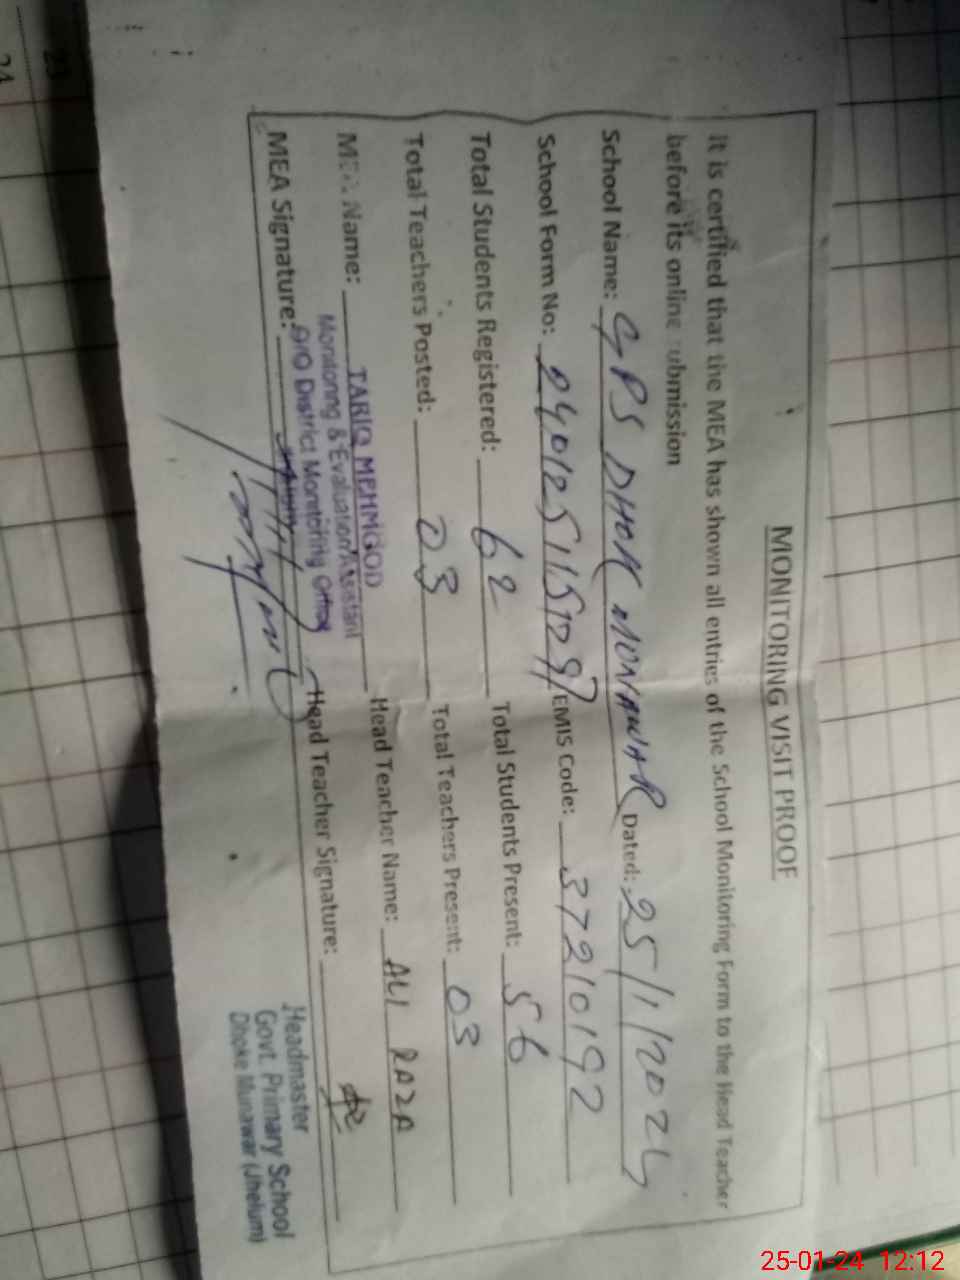 MONITORING VISIT PROOF
It is certified that the MEA has shown all entries of the School Monitoring Form to the Head Teacher
before its online submission
School Name: GPS DHOK MUNAWAR Dated: 25/1/2024
School Form No: EMIS Code: 37210192
Total Students Registered: 62 Total Students Present: 56
Total Teachers Posted: 03 Total Teachers Present: 03
MEA Name: TARIQ MEHMOOD Head Teacher Name: ALI RAZA
Monitoring & Evaluation Assistant
MEA Signature: O/O District Monitoring Officer Head Teacher Signature:
Headmaster
Govt. Primary School
Dhoke Munawar (Jhelum)
23
24
25-01-24 12:12